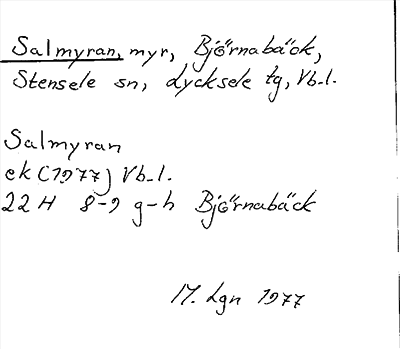 Salmyran, myr, Björnabäck,
Stensele sn, Lycksele tg, Vb.l.
Salmyran
ek (1977) Vb.l.
22 H 8-9 g-h Björnabäck
Lgn 1977